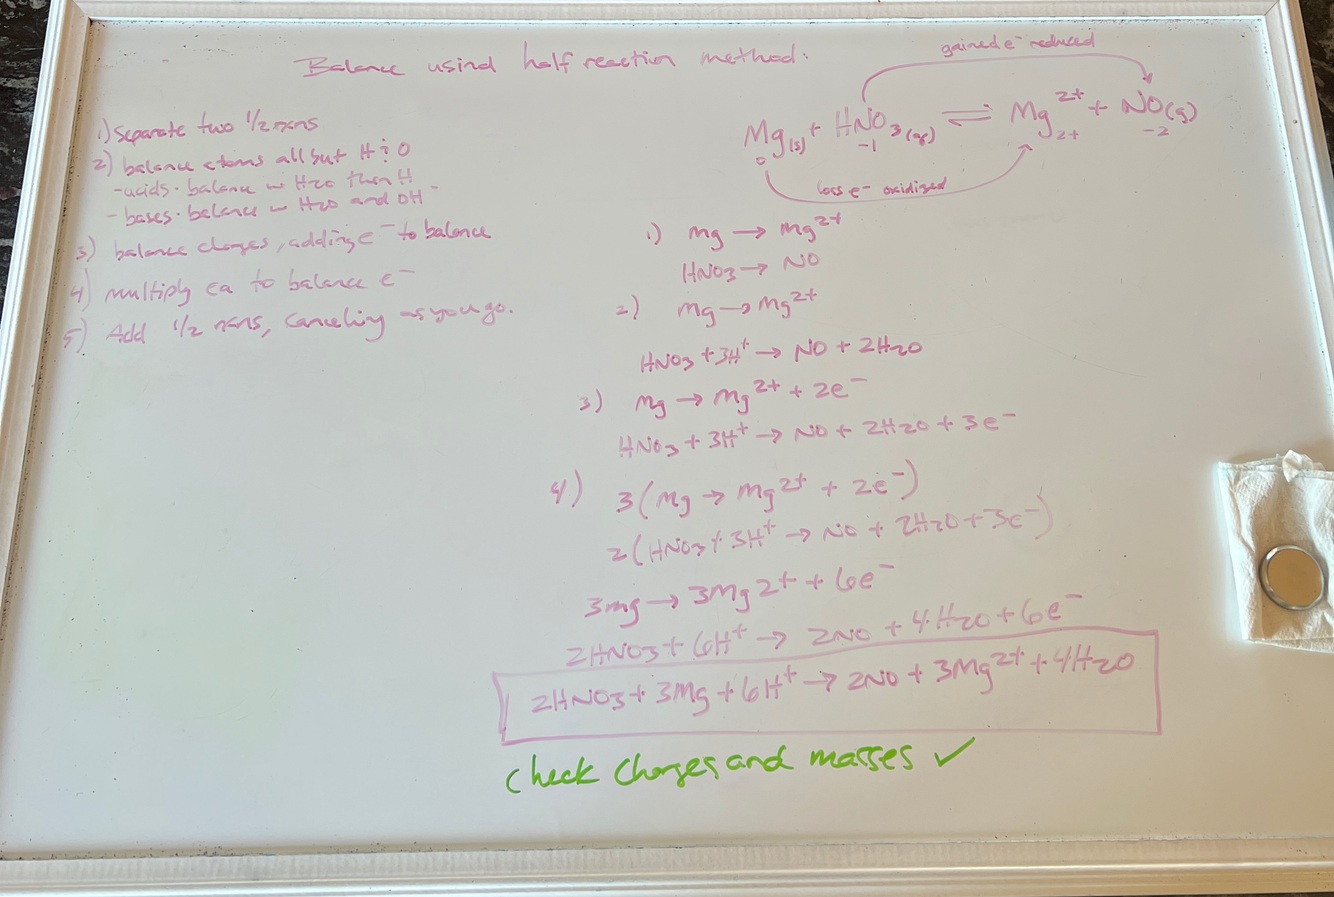 Balance usind half reaction method:
1) Separate two 1/2 rxns
2) balance atoms all but H & O
- acids · balance w H2O then H
- bases · balance w H2O and OH-
3) balance charges, adding e- to balance
4) multiply ea to balance e-
5) Add 1/2 rxns, canceling as you go.
gained e- reduced
Mg(s) + HNO3(aq) ⇌ Mg2+ + NO(g)
0 -1 2+ -2
loss e- oxidized
1) Mg → Mg2+
HNO3 → NO
2) Mg → Mg2+
HNO3 + 3H+ → NO + 2H2O
3) Mg → Mg2+ + 2e-
HNO3 + 3H+ → NO + 2H2O + 3e-
4) 3(Mg → Mg2+ + 2e-)
2(HNO3 + 3H+ → NO + 2H2O + 3e-)
3Mg → 3Mg2+ + 6e-
2HNO3 + 6H+ → 2NO + 4H2O + 6e-
2HNO3 + 3Mg + 6H+ → 2NO + 3Mg2+ + 4H2O
check charges and masses ✓